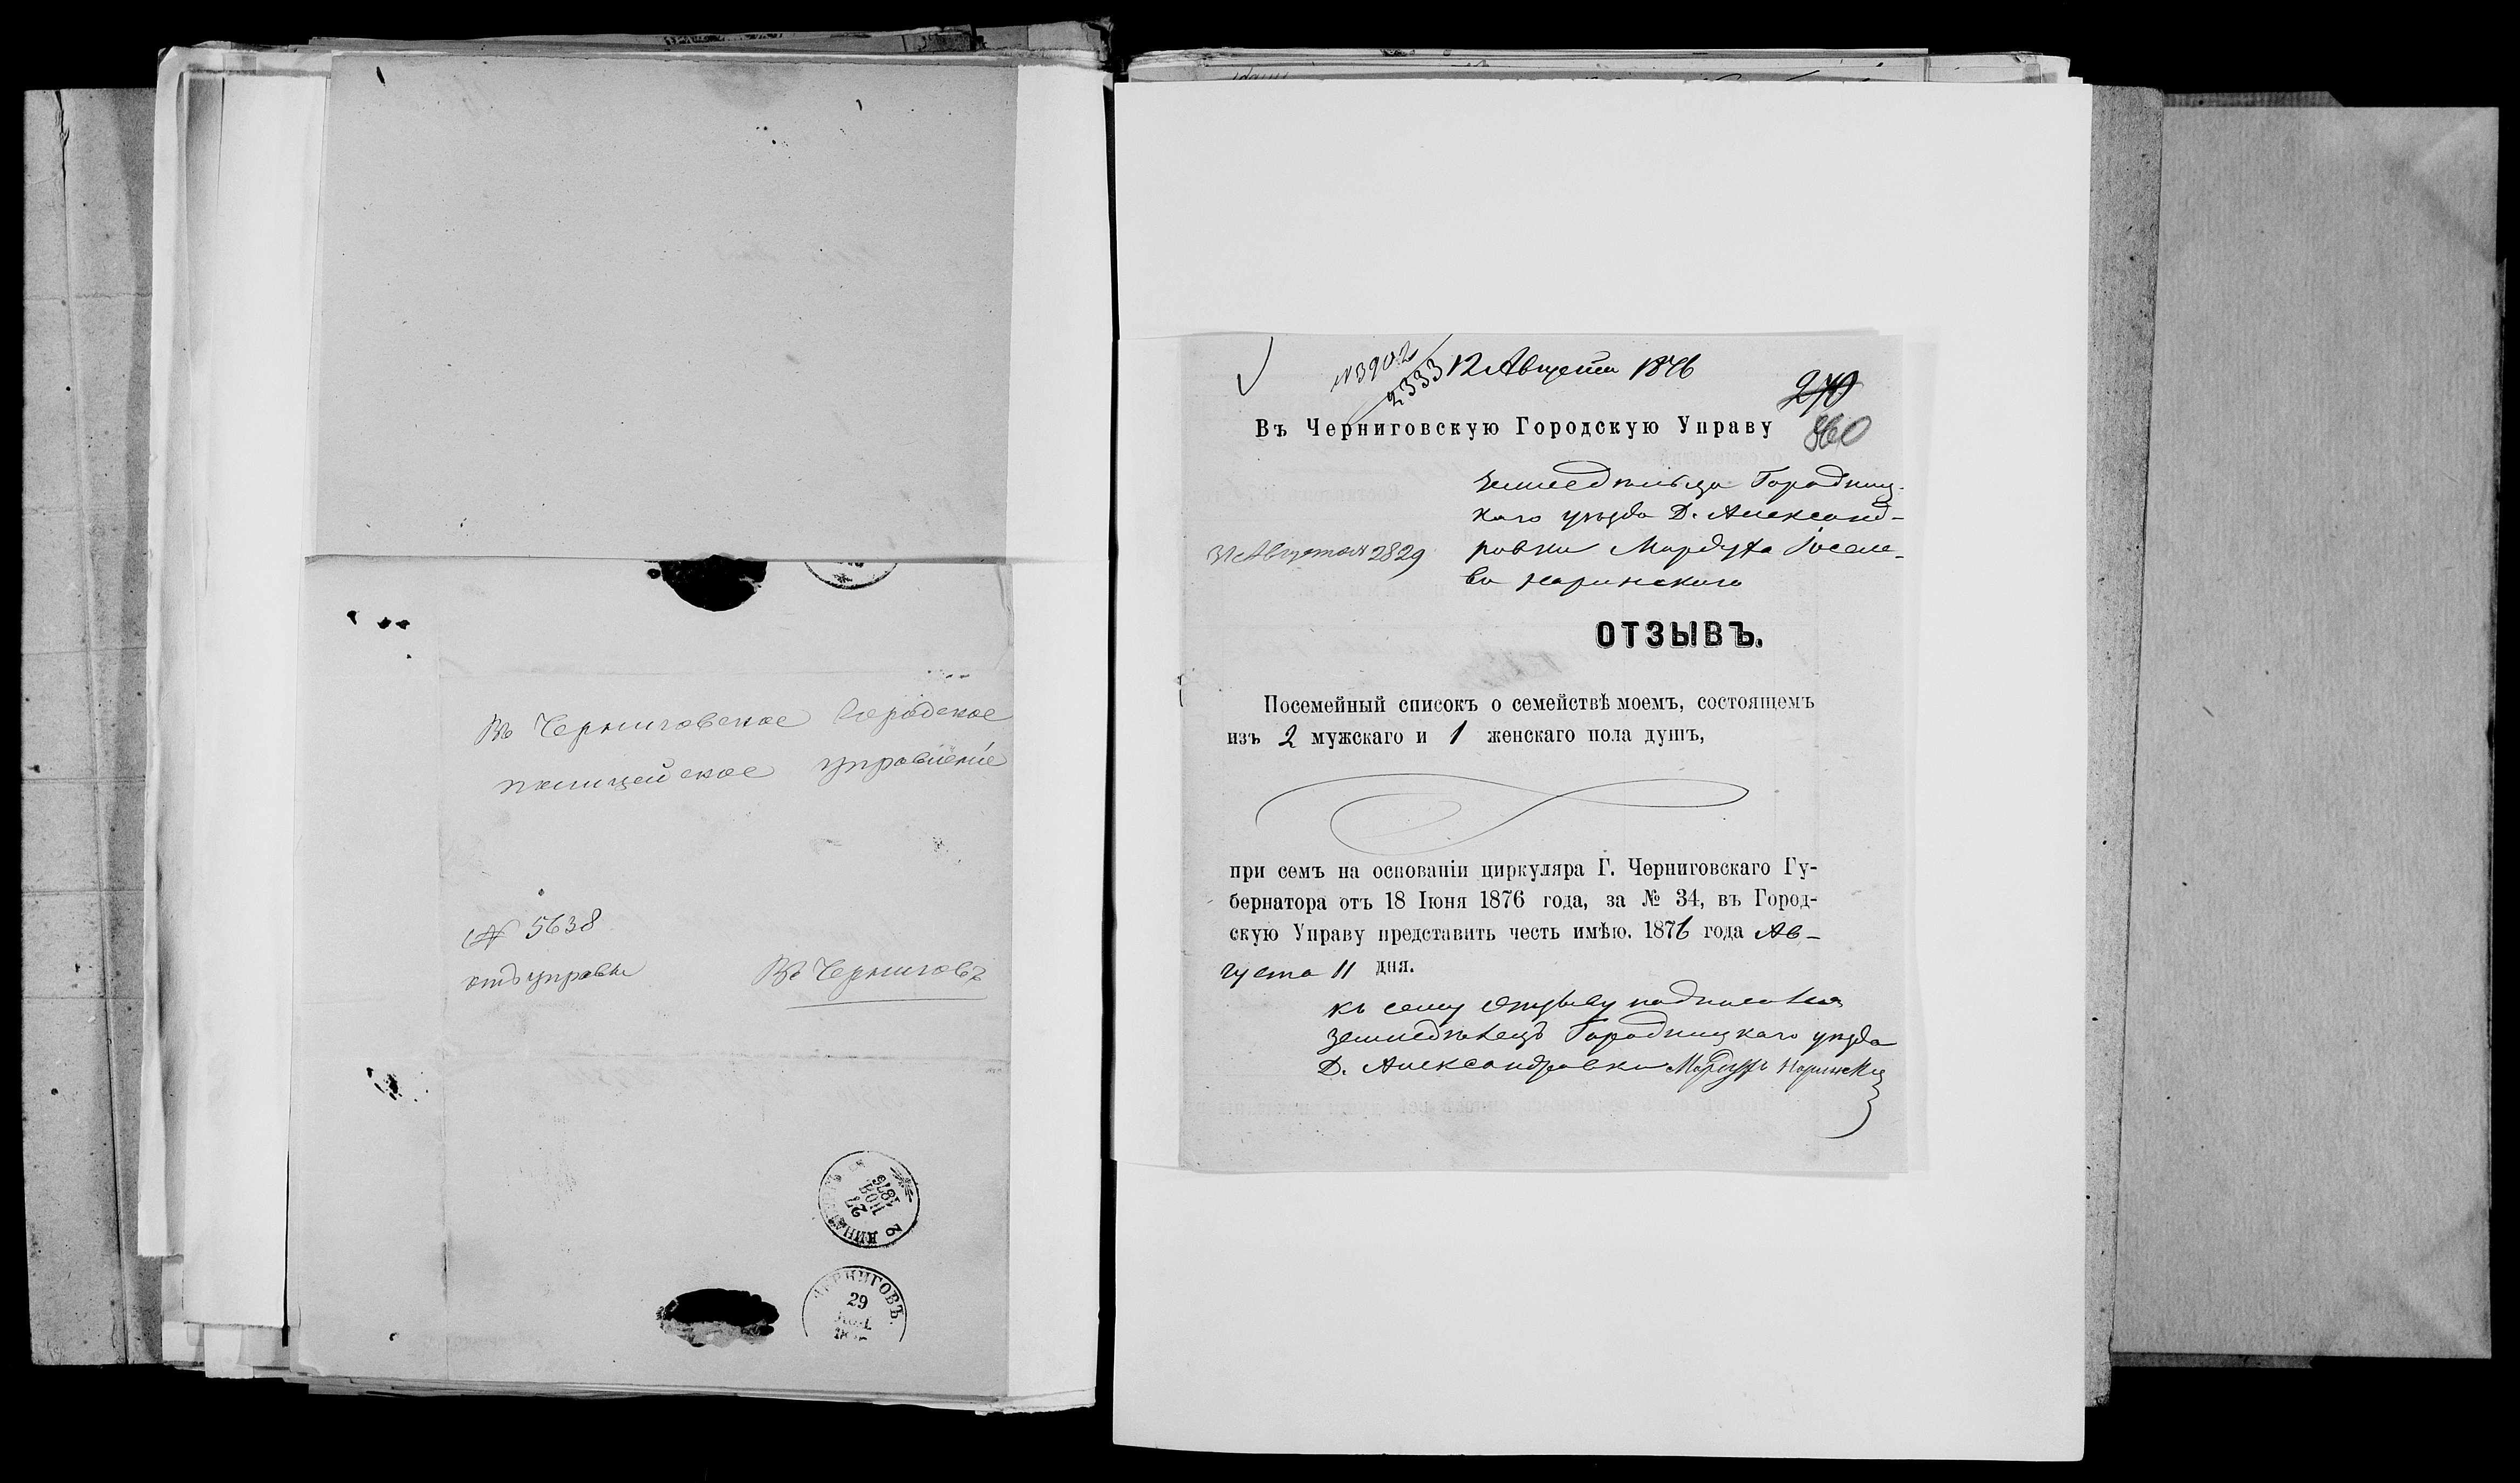 Въ Черниговское Городское
полицейское управленіе
№ 5638
отъ управы
Въ Черниговъ
27
ІЮЛ
1876
2
ЧЕРНИГОВЪ
29
№ 3902
2333
12 Августа 1876
270
860
Въ Черниговскую Городскую Управу
земледельца Городниц-
каго уезда Д. Александ-
ровки Мордуха Іоселе-
ва Наринского
31 Августа № 2829
ОТЗЫВЪ.
Посемейный списокъ о семействѣ моемъ, состоящемъ
изъ 2 мужскаго и 1 женскаго пола душъ,
при семъ на основаніи циркуляра Г. Черниговскаго Гу-
бернатора отъ 18 Іюня 1876 года, за № 34, въ Город-
скую Управу представить честь имѣю. 1876 года Ав-
густа 11 дня.
къ сему отзыву подписался
земледелецъ Городницкаго уезда
Д. Александровки Мордухъ Наринский